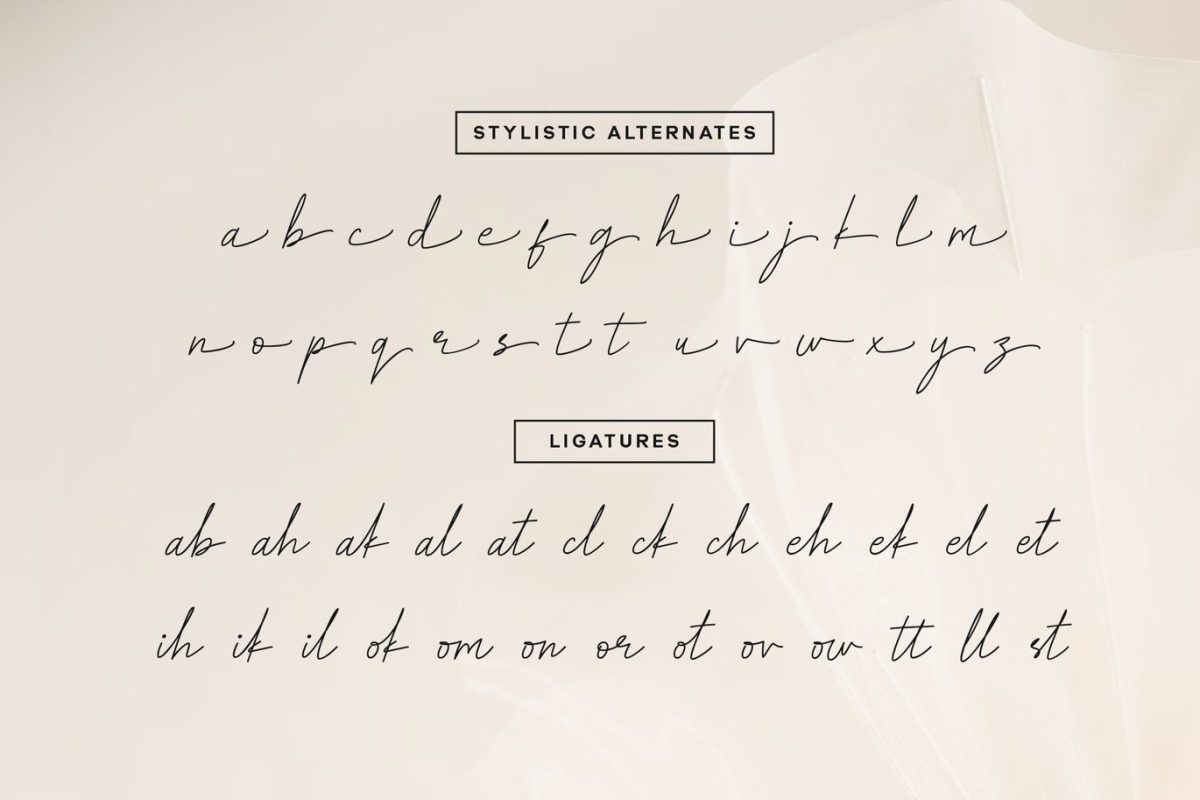 STYLISTIC ALTERNATES
a b c d e f g h i j k l m
n o p q r s t t u v w x y z
LIGATURES
ab ah ak al at cl ck ch eh ek el et
ih ik il ok om on or ot ov ow tt ll st